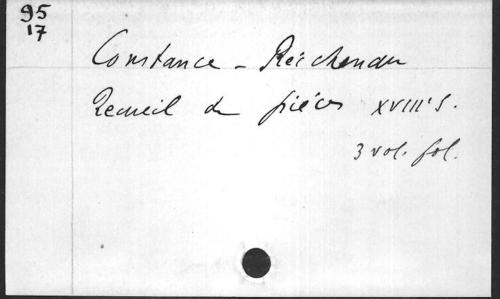 95
17
Constance - Reichenau
Recueil de pièces XVIIIe s.
3 vol. fol.